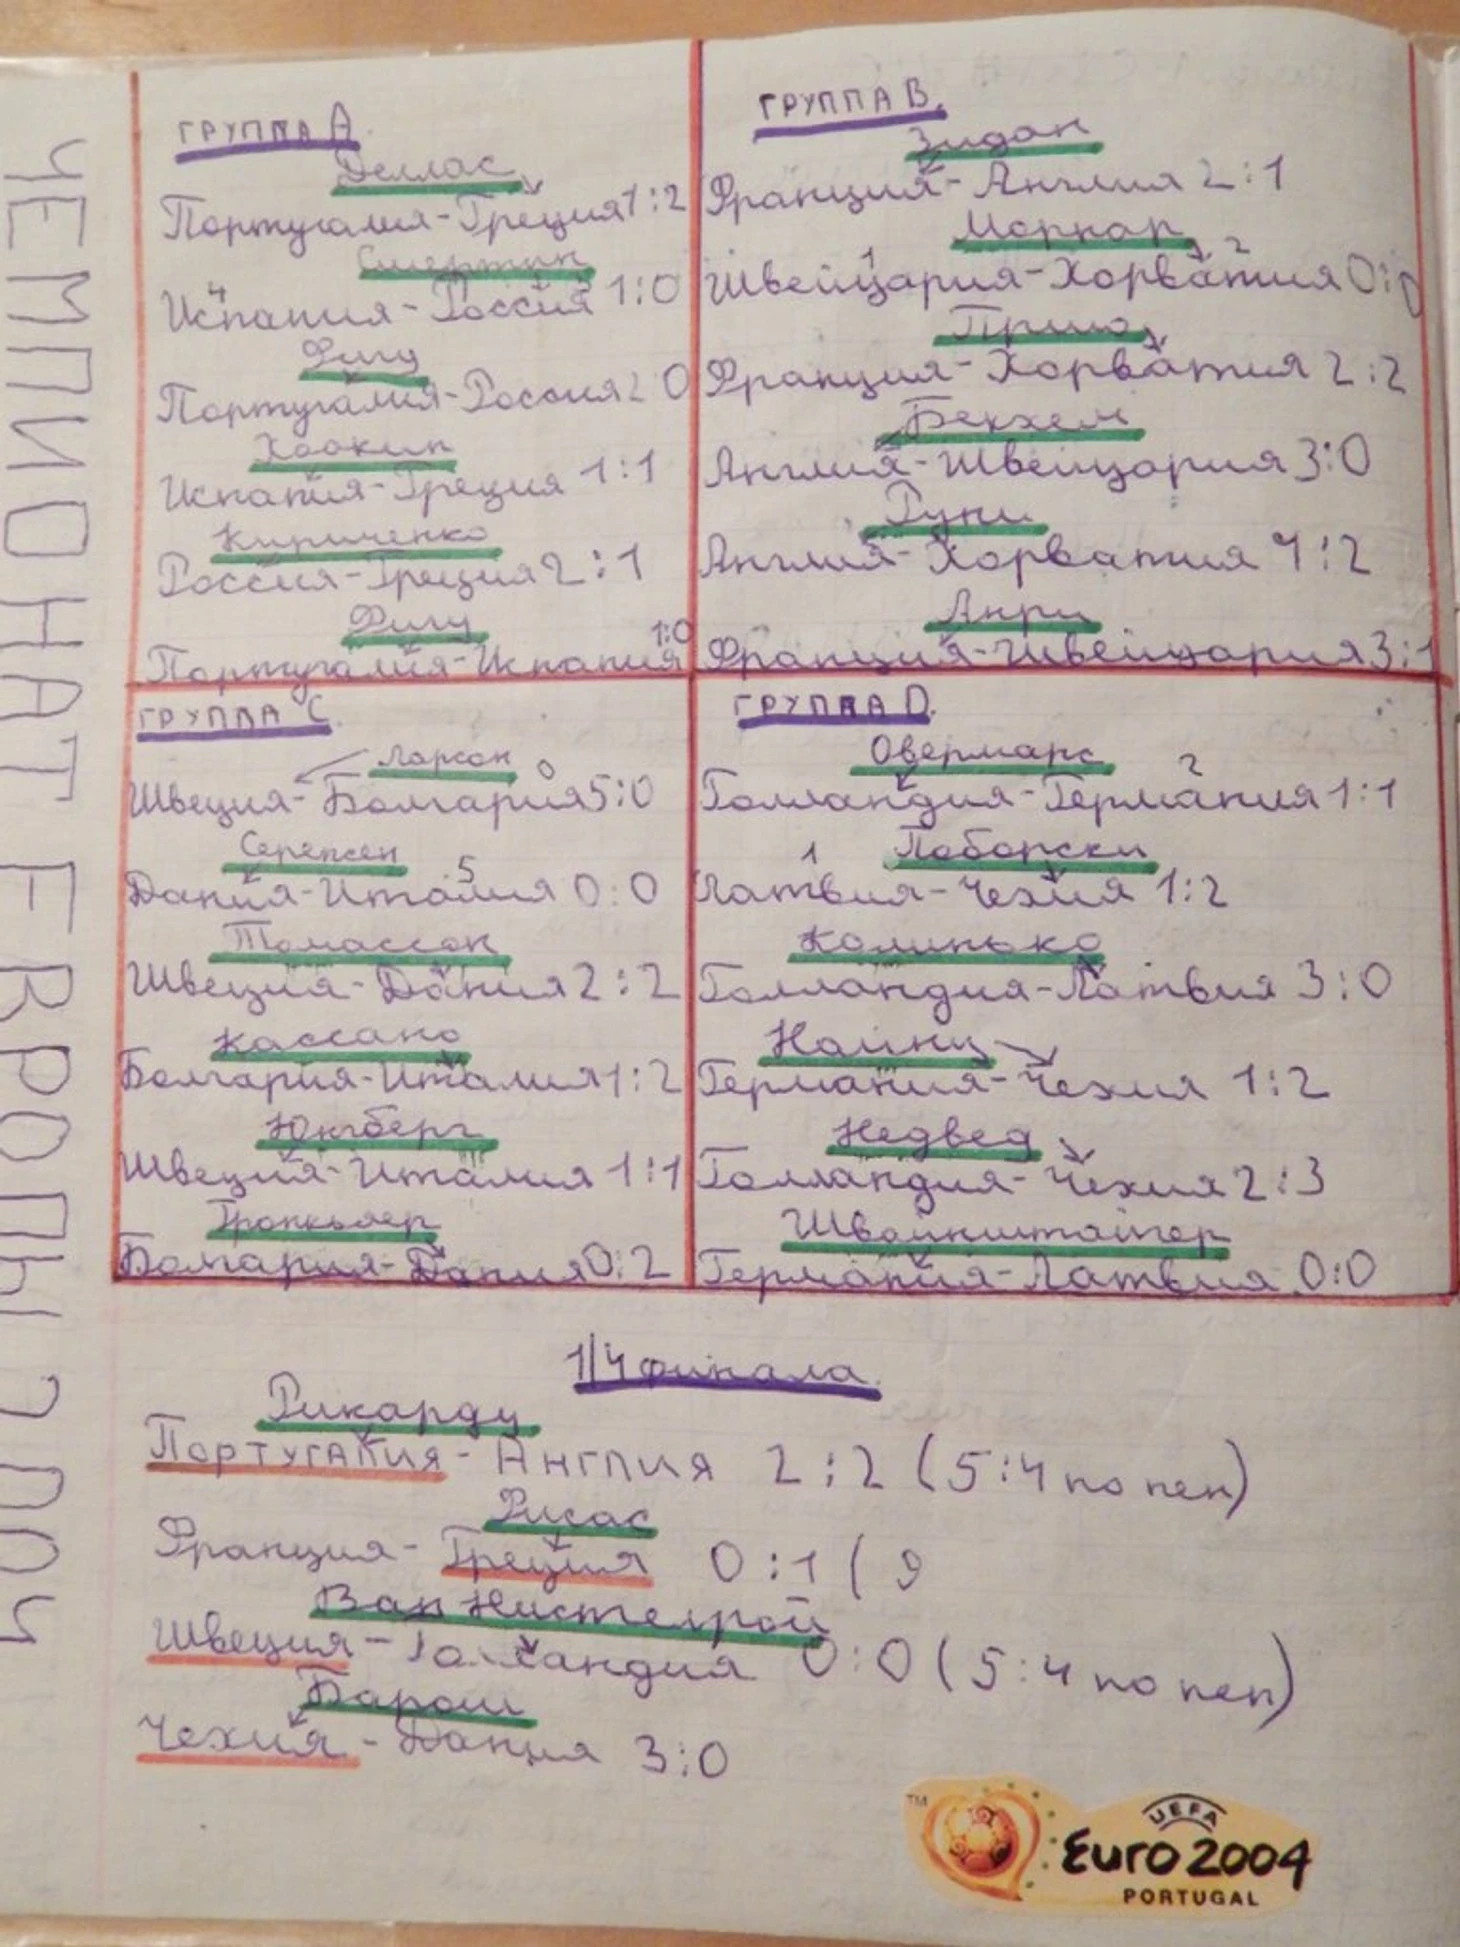 ЧЕМПИОНАТ ЕВРОПЫ 2004
ГРУППА А.
Деллас
Португалия-Греция 1:2
Смертин
4
Испания-Россия 1:0
Фигу
Португалия-Россия 2 0
Хоакин
Испания-Греция 1:1
Кириченко
Россия-Греция 2:1
Фигу
1:0
Португалия-Испания
ГРУППА В.
Зидан
Франция-Англия 2:1
1 2
Швейцария-Хорватия 0:0
Пршо
Франция-Хорватия 2:2
Бекхем
Англия-Швейцария 3:0
Руни
Англия-Хорватия 4:2
Анри
Франция-Швейцария 3:1
ГРУППА С.
Ларсон
0
Швеция-Болгария 5:0
Серенсен
5
Дания-Италия 0:0
Томассон
Швеция-Дания 2:2
Кассано
Болгария-Италия 1:2
Юнгберг
Швеция-Италия 1:1
Гронкьяер
Болгария-Дания 0:2
ГРУППА D.
Овермарс
2
Голландия-Германия 1:1
1 Поборски
Латвия-Чехия 1:2
Колинько
Голландия-Латвия 3:0
Хайнц
Германия-Чехия 1:2
Недвед
Голландия-Чехия 2:3
Швайнштайгер
Германия-Латвия 0:0
1/4 финала.
Рикарду
Португалия - Англия 2:2 (5:4 по пен)
Франция - Греция 0:1 (
Ван Нистелрой
Швеция - Голландия 0:0 (5:4 по пен)
Барош
Чехия - Дания 3:0
TM
UEFA
Euro 2004
PORTUGAL